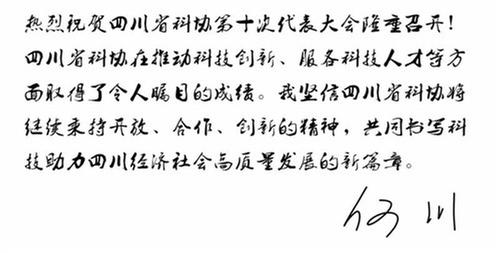 热烈祝贺四川省科协第十次代表大会隆重召开！
四川省科协在推动科技创新、服务科技人才等方
面取得了令人瞩目的成绩。我坚信四川省科协将
继续秉持开放、合作、创新的精神，共同书写科
技助力四川经济社会高质量发展的新篇章。
何川